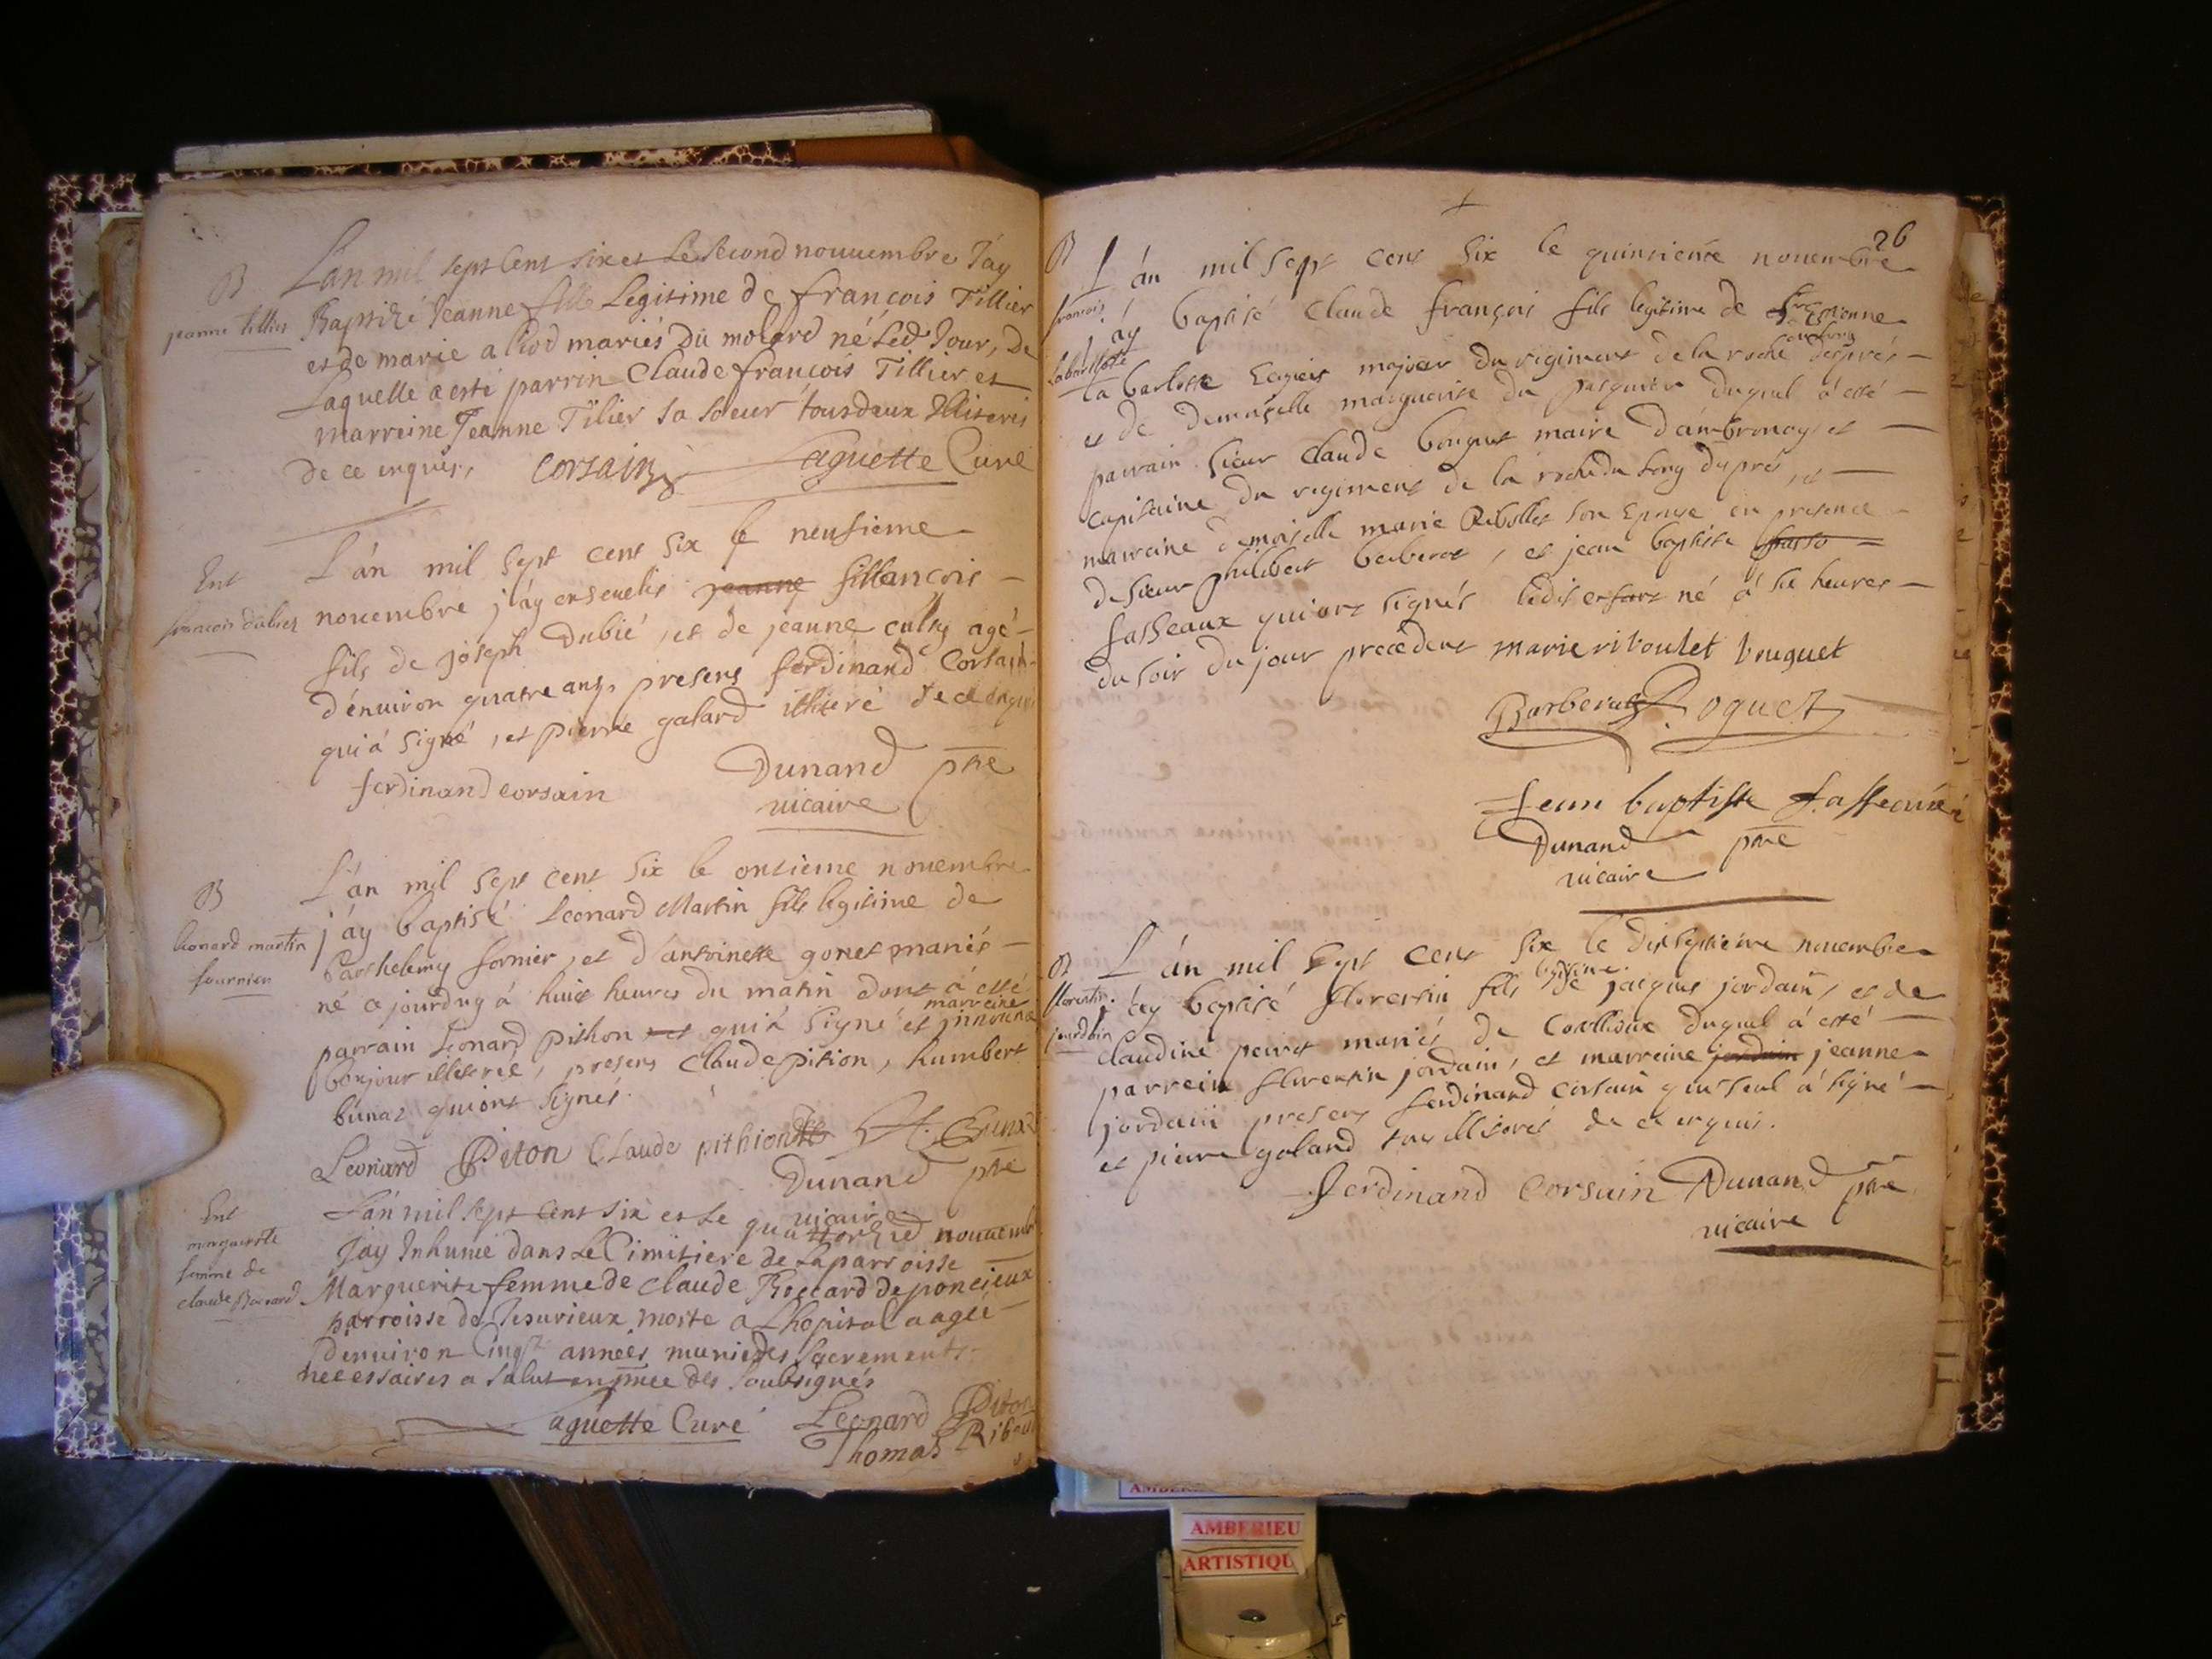 B
jeanne tillier
Lan mil sept Cent six et Le Second nouuembre Jáy
Baptizé Jeanne fille Legitime de françois Tillier
et de marie a mariés Du molard né Led Jour, De
Laquelle a esté parrin Claude françois Tillier et
marreine Jeanne Tilier sa soeur tous deux Illiteris
De ce enquis, corsain Laguette Curé
Ent
francois dubiez
L'án mil sept cent six le neufieme
nouembre j'áy enseuelis jeanne francois
fils de joseph Dubié, et de jeanne agé
d'énuiron quatre ans, presens ferdinand Corsain
qui á signé, et pierre galard illiteré de ce enquis
ferdinand corsain Dunand ptre
uicaire
B
leonard martin
fournier
L'án mil sept cent six le onsieme nouembre
j'áy baptisé Leonard Martin fils legitime de
barthelemy fornier, et d'antoinette gonet mariés
né ce jourduy á huit heures du matin dont á esté
parrain Leonard pithon et qui á signé et marreine
bonjour illiterée, presens Claude pition, humbert
bunaz qui ont signés.
Leonard Piton Claude pithion H. Bunaz
Dunand ptre
uicaire
Ent
marguerite
femme de
claude
Lán mil sept cent six et Le quattorzie nouuembre
Jáy Inhumé dans Le Cimitiere de La parroisse
Marguerite femme de Claude de poncieux
parroisse de Jesurieux morte a Lhopital aagée
Denuiron Cinqte années munie des Sacrements
necessaires a salut en pnce des soubsignés
Laguette Curé Leonard Piton
Thomas
26
B
francois
La barlotte
L án mil sept cent six le quinsieme nouembre
j'áy baptisé Claude françois fils legitime de
la barlotte majeur du regiment de la roche
et de demoiselle marguerite du pasquier duquel á esté
parrain sieur Claude bouguet maire d'ámbronay et
capitaine du regiment de la roche du prés, et
marreine demoiselle marie Ribollet son Epouse en presence
de sieur philibert berberat, et jean baptiste fasso
fasseaux qui ont signés ledit enfant né á six heures
du soir du jour precedent marie riboulet bouguet
Barberat Boguet
Jean baptiste fasseaux
Dunand ptre
uicaire
B
florentin
jourdain
L án mil sept cent six le dixseptieme nouembre
j'áy baptisé florentin fils legitime de jacques jordain, et de
Claudine peiret mariés de duquel á esté
parrein florentin jordain, et marreine jordain jeanne
jordain presens ferdinand corsain qui seul á signé
et pierre galand illiterés de ce enquis.
ferdinand corsain Dunand ptre
uicaire
AMBERIEU
ARTISTIQU